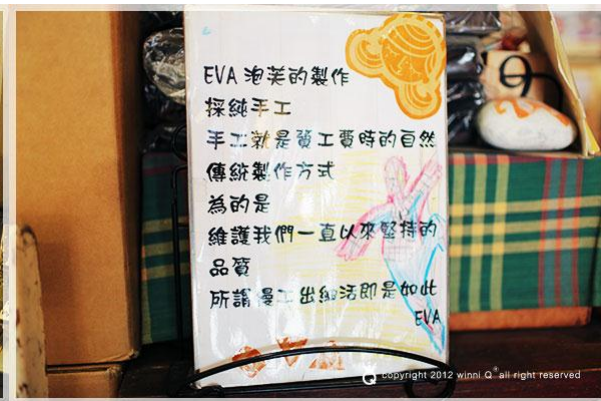 EVA 泡芙的製作
採純手工
手工就是質工費時的自然
傳統製作方式
為的是
維護我們一直以來堅持的
品質
所謂慢工出細活即是如此
EVA
9
Q copyright 2012 winni Q ® all right reserved